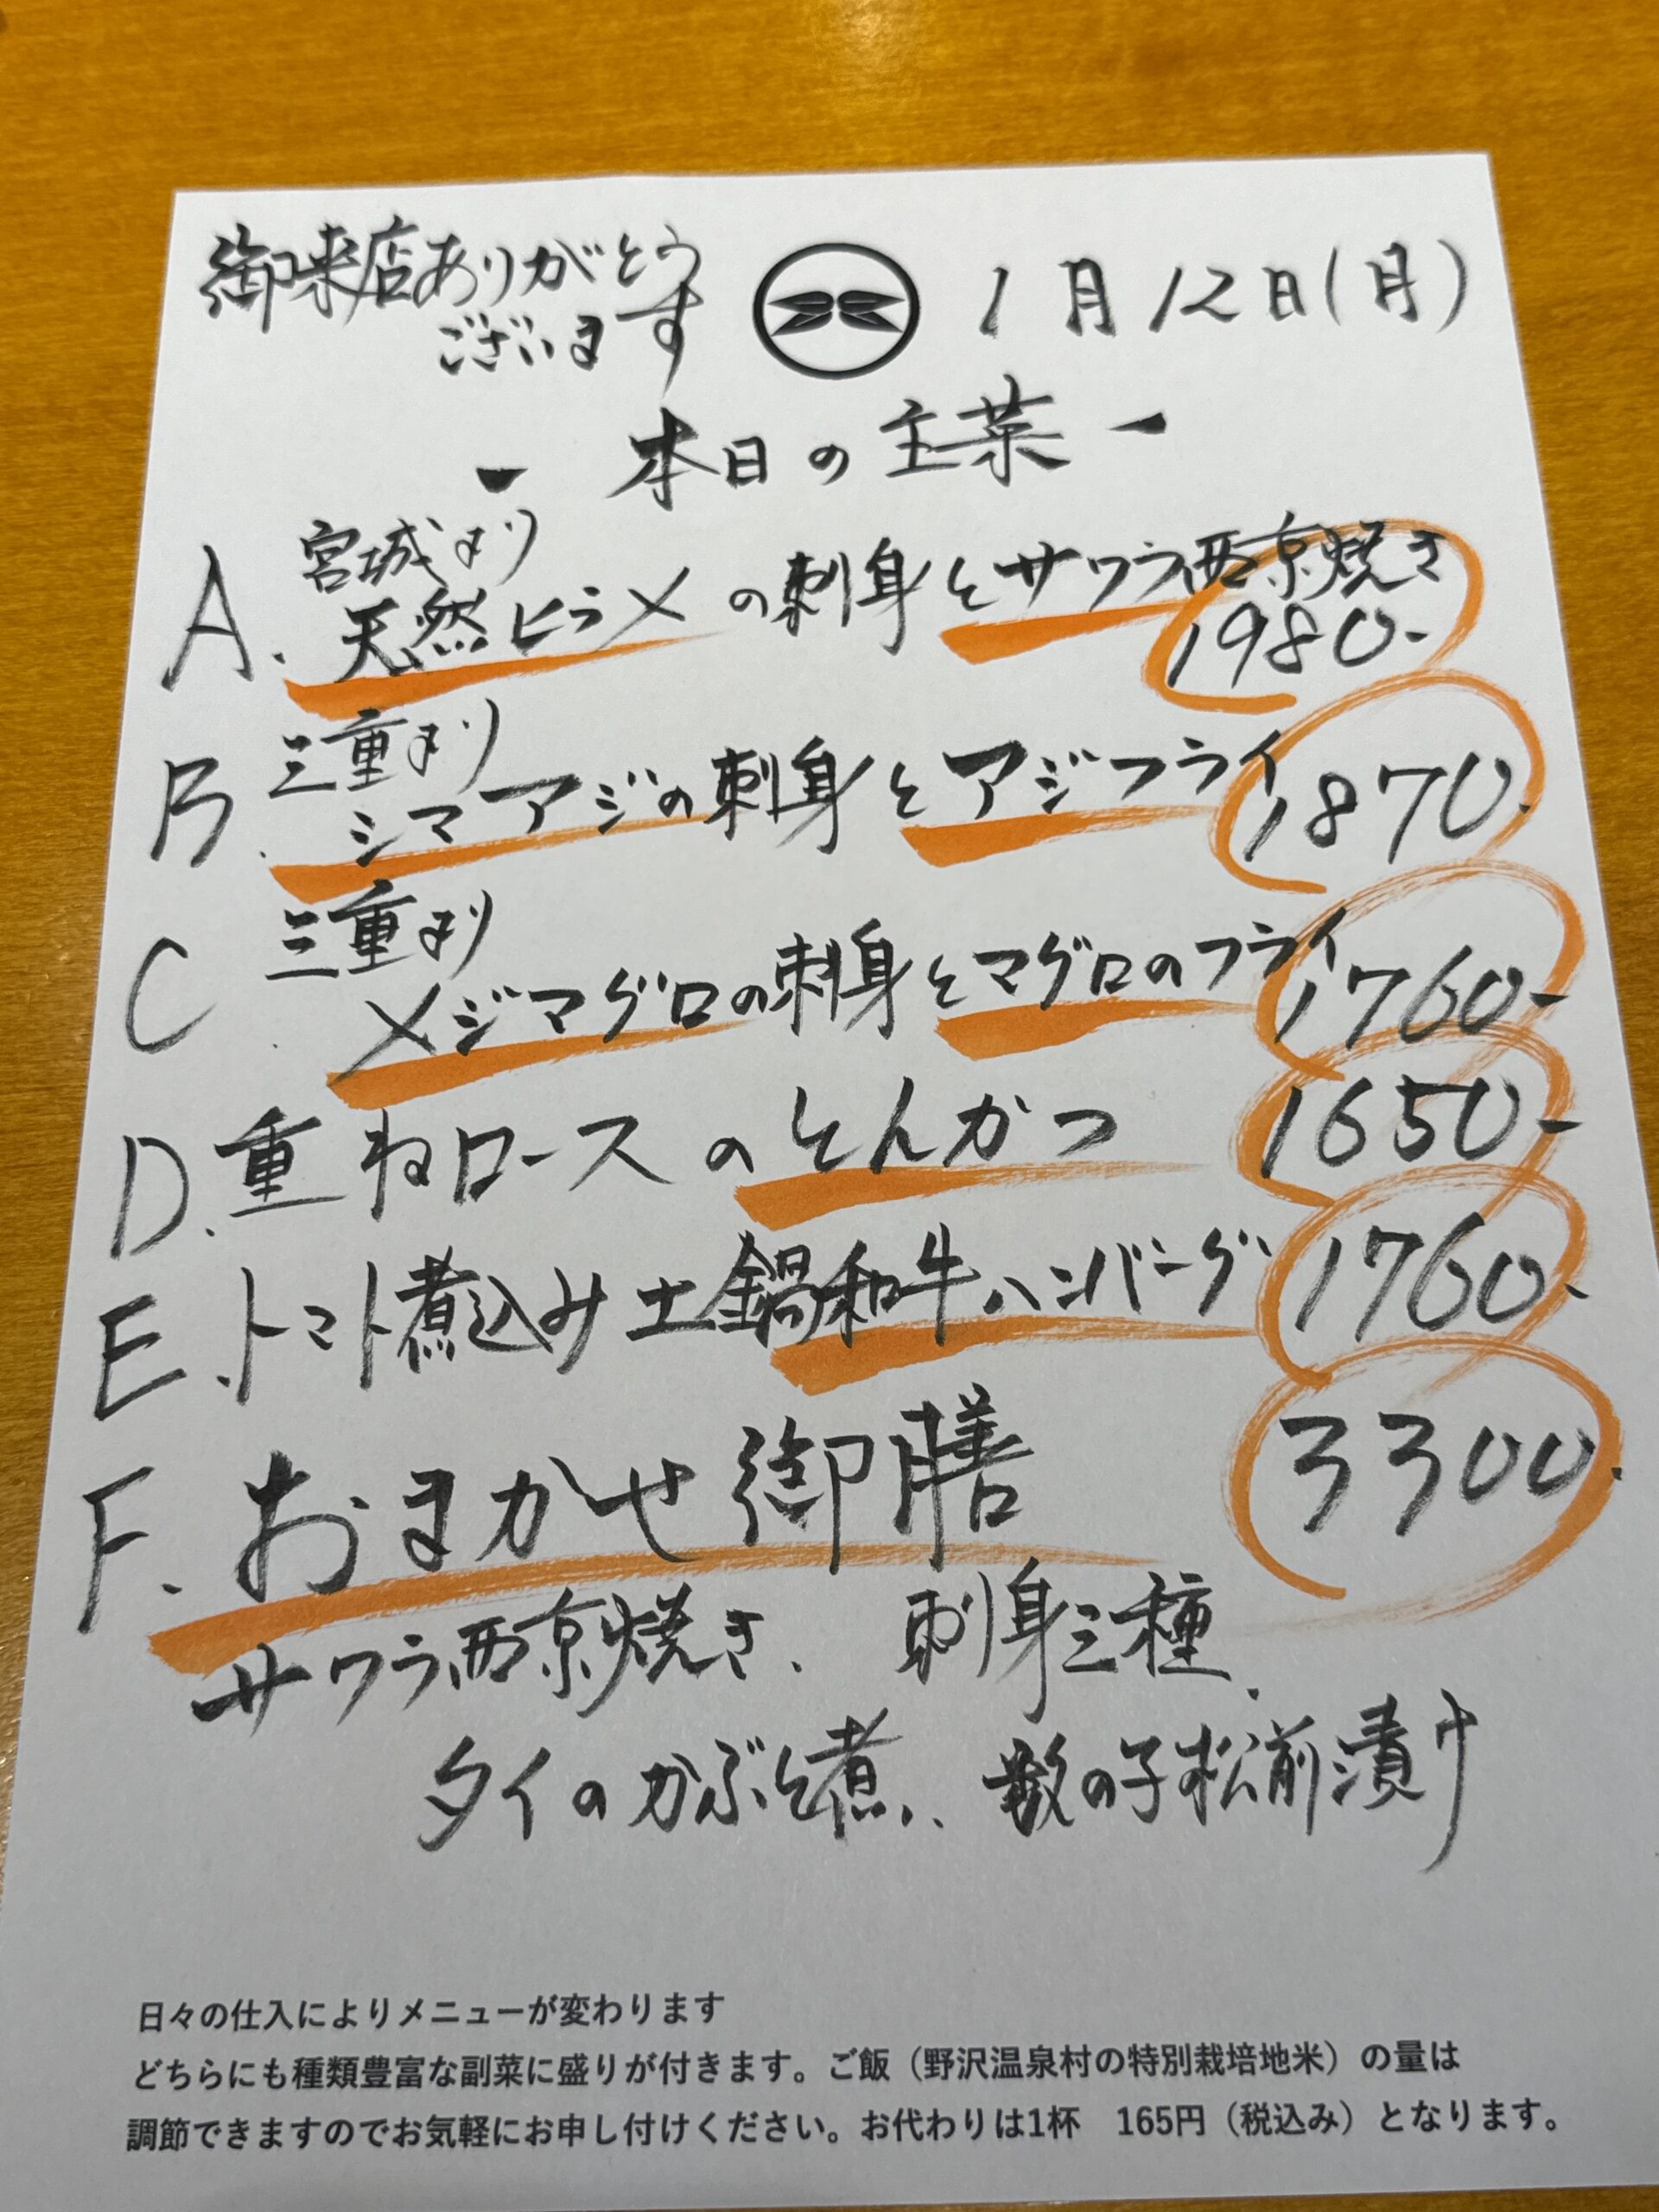 御来店ありがとう
ございます
1月12日(月)
- 本日の主菜 -
A. 宮城より
天然ヒラメの刺身とサワラ西京焼き
1980-
B. 三重より
シマアジの刺身とアジフライ 1870.
C 三重より
メジマグロの刺身とマグロのフライ 1760-
D. 重ねロースのとんかつ 1650-
E. トマト煮込み土鍋和牛ハンバーグ 1760-
F. おまかせ御膳 3300.
サワラ西京焼き、刺身三種、
タイのかぶと煮、数の子松前漬け
日々の仕入によりメニューが変わります
どちらにも種類豊富な副菜に盛りが付きます。ご飯（野沢温泉村の特別栽培地米）の量は
調節できますのでお気軽にお申し付けください。お代わりは1杯　165円（税込み）となります。